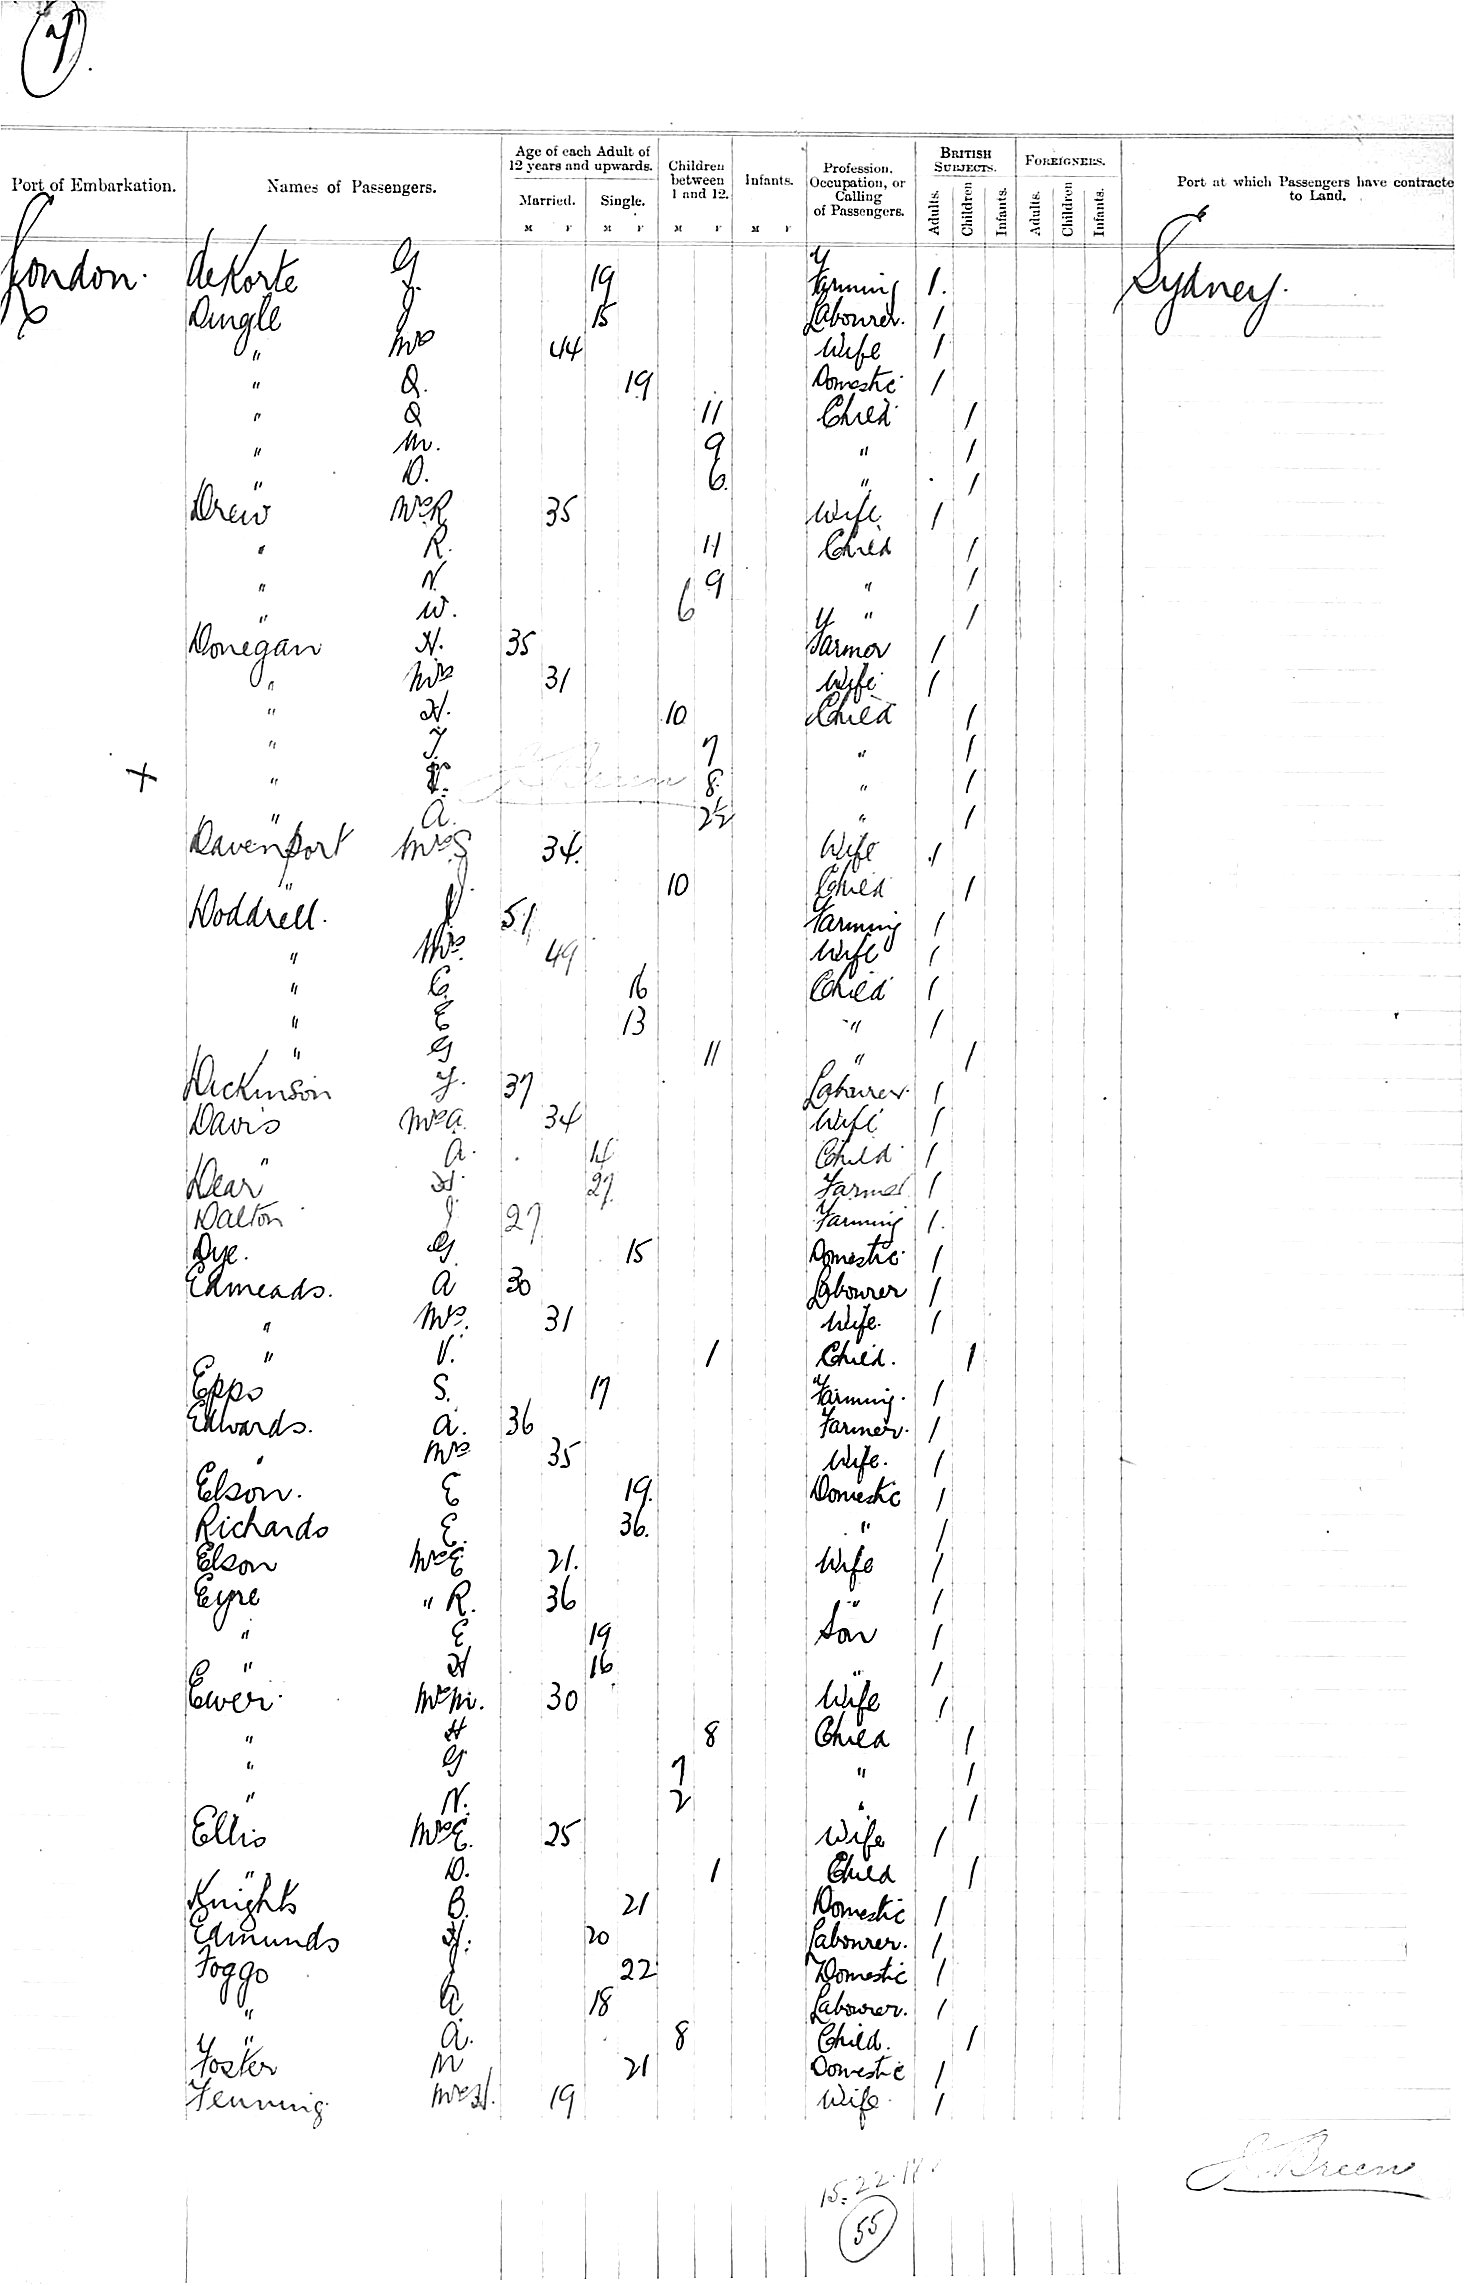 Port of Embarkation. Names of Passengers. Age of each Adult of 12 years and upwards. Children between 1 and 12. Infants. Profession, Occupation, or Calling of Passengers. BRITISH SUBJECTS. FOREIGNERS. Port at which Passengers have contracte to Land.
Married. Single. Adults. Children Infants. Adults. Children Infants.
M F M F M F M F
London. deKorte G 19 Farming 1. Sydney.
Dingle J. 15 Labourer. 1
" Mrs 44 Wife 1
" 19 Domestic 1
" 11 Child 1
" M. 9 " 1
" D. 6. " 1
Drew Mrs R 35 Wife 1
" R. 11 Child 1
" N. 9 " 1
" W. 6 " 1
Donegan H. 35 Farmer 1
" Mrs 31 Wife 1
" H. 10 Child 1
" 7 " 1
+ " 8. " 1
" A. 2½ " 1
Davenport Mrs S 34. Wife 1
" J. 10 Child 1
Doddrell. J 51 Farming 1
" Mrs. 49 Wife 1
" C. 16 Child 1
" E 13 " 1
" G 11 " 1
Dickinson 37 Labourer. 1
Davis Mrs A. 34 Wife 1
" A. 14 Child 1
Dear H. 27 Farmer 1
Dalton J 27 Farming 1.
Dye. G. 15 Domestic 1
Edmeads. A 30 Labourer 1
" Mrs. 31 Wife. 1
" V. 1 Child. 1
Epps S. 17 Farming. 1
Edwards. A. 36 Farmer. 1
" Mrs 35 Wife. 1
Elson. E 19. Domestic 1
Richards E. 36. " 1
Elson Mrs E 21. Wife 1
Eyre " R. 36 " 1
" E 19 Son 1
" H 16 " 1
Ewer. Mrs M. 30 Wife 1
" H 8 Child 1
" G 7 " 1
" N. 2 " 1
Ellis Mrs E. 25 Wife 1
" D. 1 Child 1
Knights B. 21 Domestic 1
Edmunds H. 20 Labourer. 1
Foggo J 22 Domestic 1
" A 18 Labourer. 1
" A. 8 Child. 1
Foster M 21 Domestic 1
Fenning Mrs H. 19 Wife. 1
J Breen
15. 22. 18
55